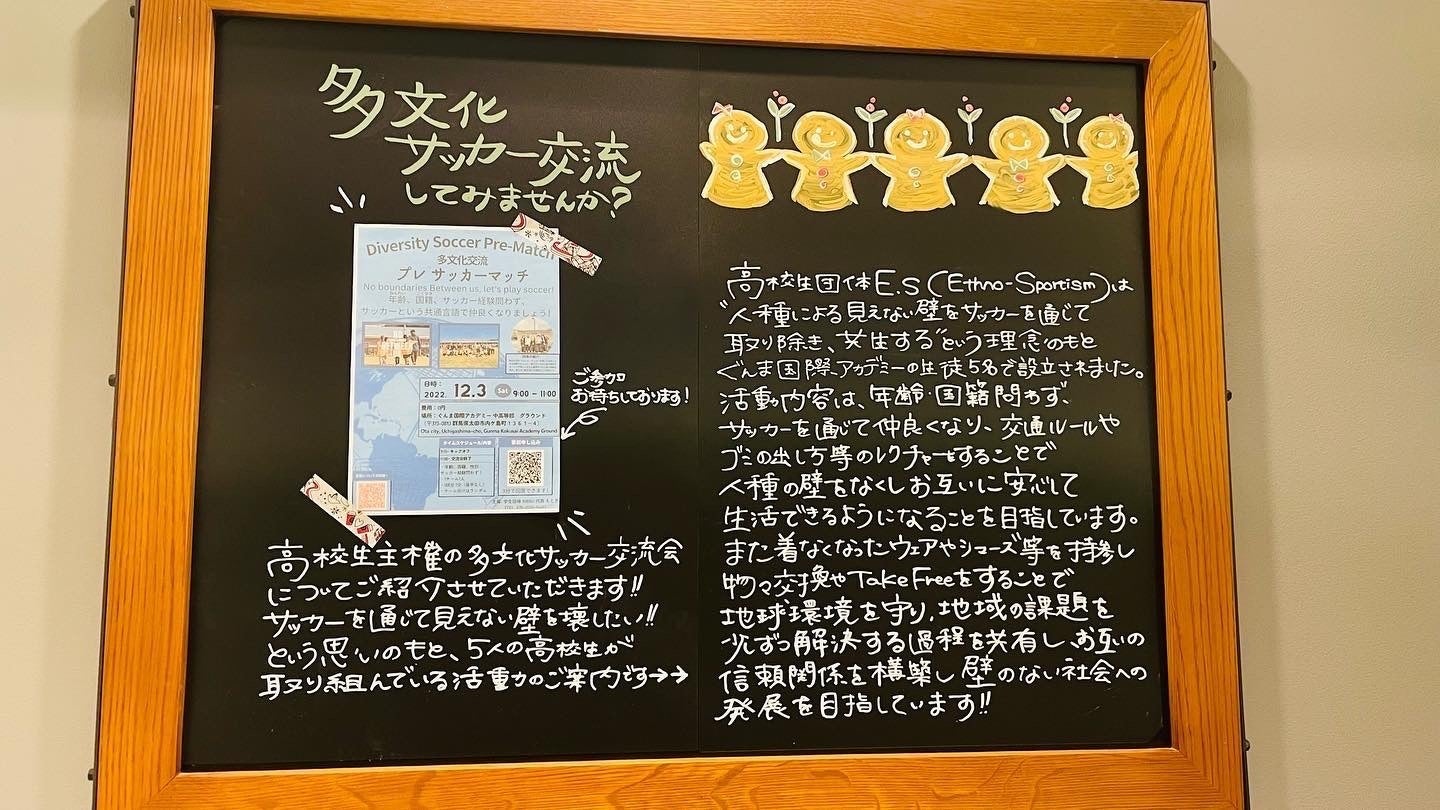 多文化
サッカー交流
してみませんか?
Diversity Soccer Pre-Match
多文化交流
プレ サッカーマッチ
No boundaries Between us, let's play soccer!
年齢、国籍、サッカー経験問わず、
サッカーという共通言語で仲良くなりましょう!
日時:
2022. 12.3 Sat 9:00 – 11:00
費用:0円
場所:ぐんま国際アカデミー 中高等部 グラウンド
群馬県太田市内ケ島町1361-4)
Ota city, Uchigashima-cho, Gunma Kokusai Academy Ground
タイムスケジュール/内容
参加申し込み
ご参加
お待ちしております!
高校生主催の多文化サッカー交流会
についてご紹介させていただきます!!
サッカーを通じて見えない壁を壊したい!!
という思いのもと、5人の高校生が
取り組んでいる活動のご案内です→→
高校生団体E.S(Ethno-Sportism)は
"人種による見えない壁をサッカーを通じて
取り除き、共生する"という理念のもと
ぐんま国際アカデミーの生徒5名で設立されました。
活動内容は、年齢・国籍問わず、
サッカーを通じて仲良くなり、交通ルールや
ゴミの出し方等のレクチャーをすることで
人種の壁をなくしお互いに安心して
生活できるようになることを目指しています。
また着なくなったウェアやシューズ等を持参し
物々交換やTake Freeをすることで
地球環境を守り、地域の課題を
少ずつ解決する過程を共有し、お互いの
信頼関係を構築し壁のない社会への
発展を目指しています!!